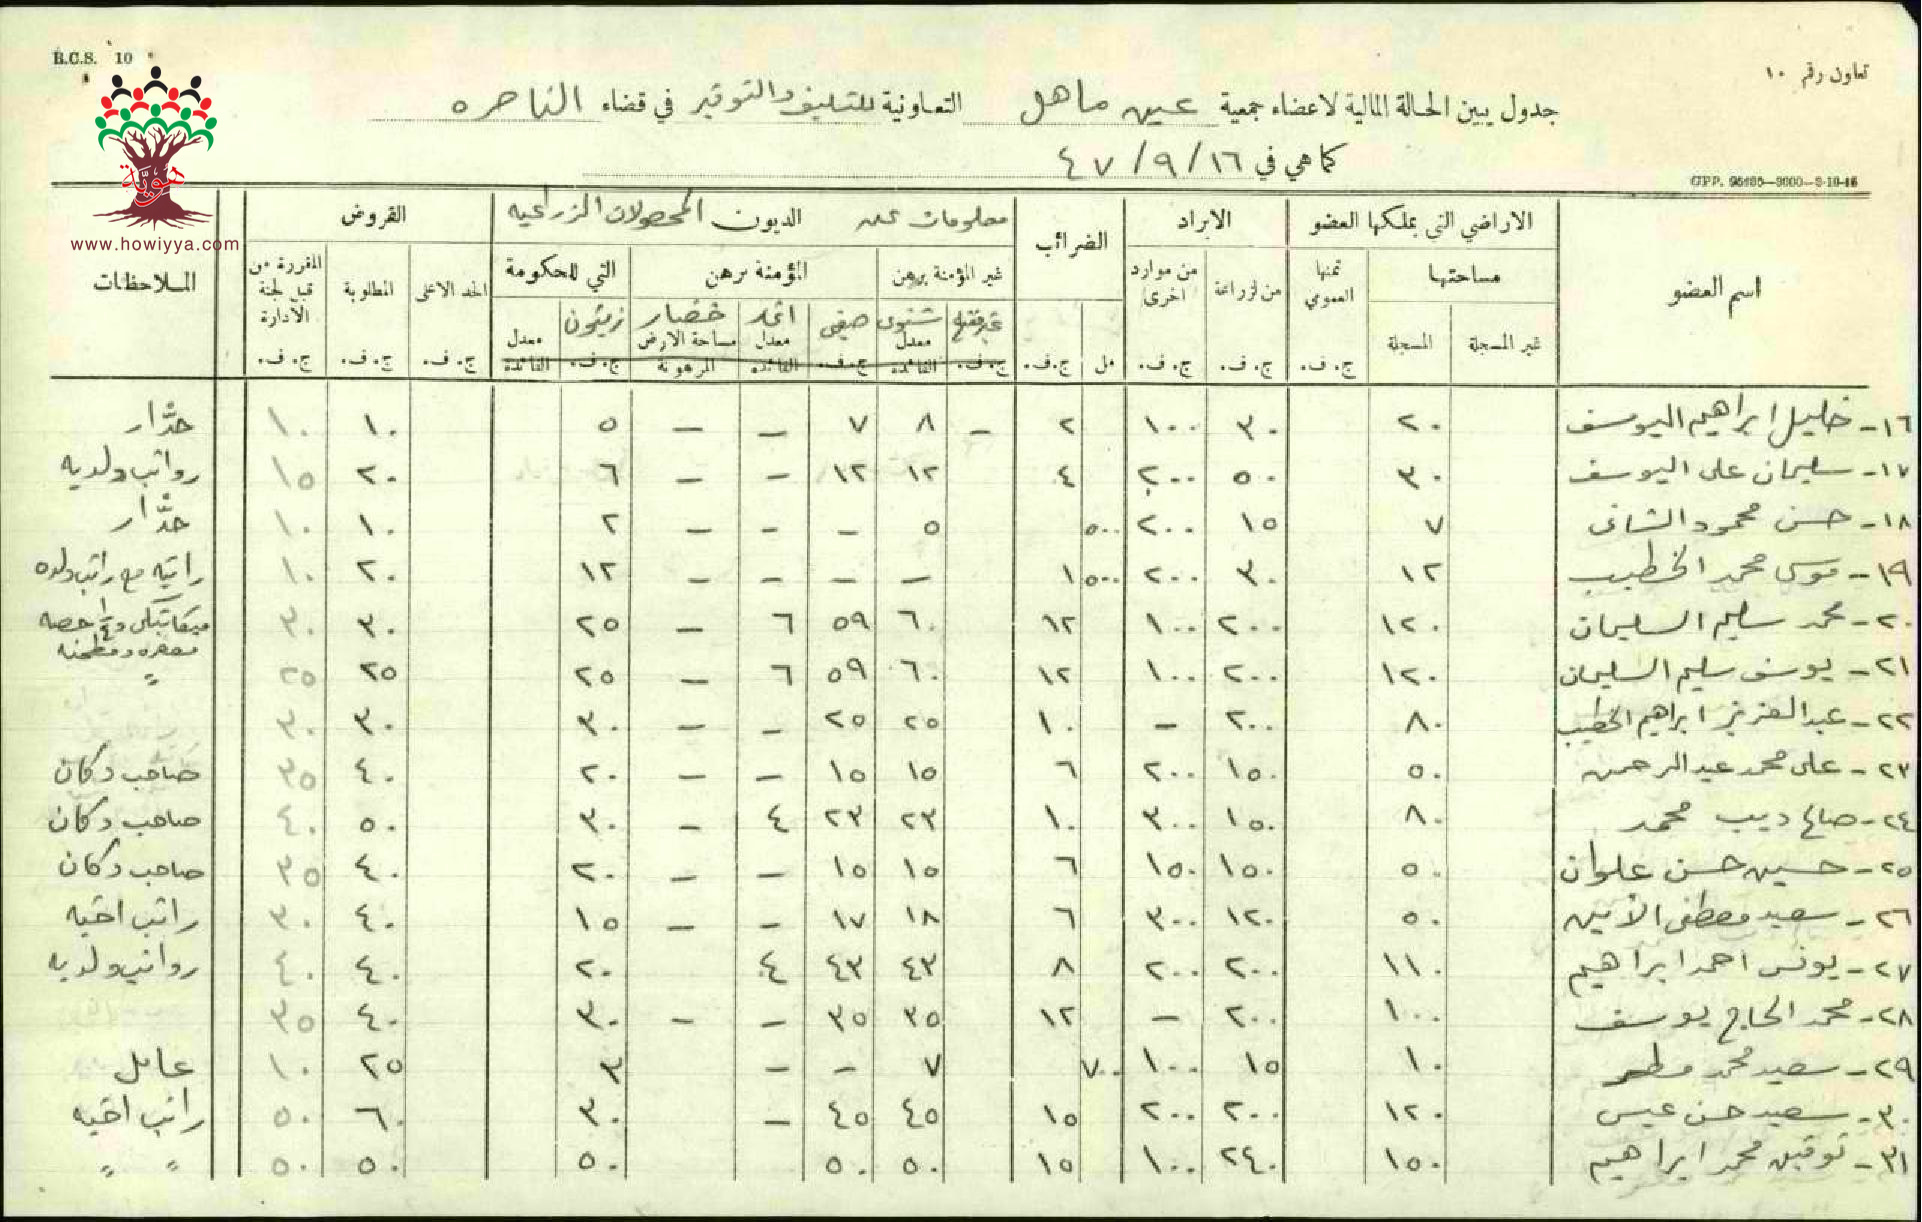 B.C.S. 10
تعاون رقم ١٠
جدول يبين الحالة المالية لاعضاء جمعية عين ماهل التعاونية للتسليف والتوفير في قضاء الناصره
كما هي في ١٦/٩/٤٧
GPP. 95135—3000—3-10-45
هوية
www.howiyya.com
اسم العضو الاراضي التي يملكها العضو الايراد الضرائب معلومات عنه الديون المحصولات الزراعيه القروض الملاحظات
مساحتها ثمنها العمومي من الزراعة من موارد اخرى غير المؤمنة برهن المؤمنة برهن التي للحكومة الحد الاعلى المطلوبة المقررة من قبل لجنة الادارة
غير المسجلة المسجلة شتوي صيفي خضار زيتون
معدل الفائدة معدل الفائدة مساحة الارض المرهونة معدل الفائدة
ج. ف. ج. ف. ج. ف. مل ج. ف. ج. ف. ج. ف. ج. ف. ج. ف. ج. ف. ج. ف.
١٦- خليل ابراهيم اليوسف ٢٠ ٣٠ ١٠٠ ٢ – ٨ ٧ – – ٥ ١٠ ١٠ حدّار
١٧- سليمان علي اليوسف ٣٠ ٥٠ ٢٠٠ ٤ ١٢ ١٢ – – ٦ ٢٠ ١٥ رواتب ولديه
١٨- حسن محمود الشافي ٧ ١٥ ٢٠٠ ٥٠٠ ٥ – – – ٢ ١٠ ١٠ حدّار
١٩- موسى محمد الخطيب ١٢ ٣٠ ٢٠٠ ٥٠٠ ١ – – – – ١٢ ٢٠ ١٠ راتبه مع راتب ولده
٢٠- محمد سليم السليمان ١٢٠ ٢٠٠ ١٠٠ ١٢ ٦٠ ٥٩ ٦ – ٢٥ ٣٠ ٣٠ ميكانيكي و ١/٤ حصه
معصره ومطحنه
٢١- يوسف سليم السليمان ١٢٠ ٢٠٠ ١٠٠ ١٢ ٦٠ ٥٩ ٦ – ٢٥ ٢٥ ٢٥ "
٢٢- عبد العزيز ابراهيم الخطيب ٨٠ ٢٠٠ – ١٠ ٢٥ ٢٥ – – ٣٠ ٣٠ ٣٠
٢٣- علي محمد عبد الرحمن ٥٠ ١٥٠ ٢٠٠ ٦ ١٥ ١٥ – – ٢٠ ٤٠ ٣٥ صاحب دكان
٢٤- صالح ديب محمد ٨٠ ١٥٠ ٣٠٠ ١٠ ٢٣ ٢٣ ٤ – ٣٠ ٥٠ ٤٠ صاحب دكان
٢٥- حسين حسن علوان ٥٠ ١٥٠ ١٥٠ ٦ ١٥ ١٥ – – ٢٠ ٤٠ ٣٥ صاحب دكان
٢٦- سعيد مصطفى الأمين ٥٠ ١٢٠ ٣٠٠ ٦ ١٨ ١٧ – – ١٥ ٤٠ ٣٠ راتب اخيه
٢٧- يونس احمد ابراهيم ١١٠ ٢٠٠ ٢٠٠ ٨ ٤٣ ٤٣ ٤ ٢٠ ٤٠ ٤٠ رواتب ولديه
٢٨- محمد الحاج يوسف ١٠٠ ٢٠٠ – ١٢ ٣٥ ٣٥ – – ٣٠ ٤٠ ٣٥
٢٩- سعيد محمد مطر ١٠ ١٥ ١٠٠ ٧٠٠ ٧ – – ٣ ٢٥ ١٠ عامل
٣٠- سعيد حسن عيسى ١٢٠ ٢٠٠ ٢٠٠ ١٥ ٤٥ ٤٥ – ٣٠ ٦٠ ٥٠ راتب اخيه
٣١- توفيق محمد ابراهيم ١٥٠ ٢٤٠ ١٠٠ ١٥ ٥٠ ٥٠ ٥٠ ٥٠ ٥٠ " "